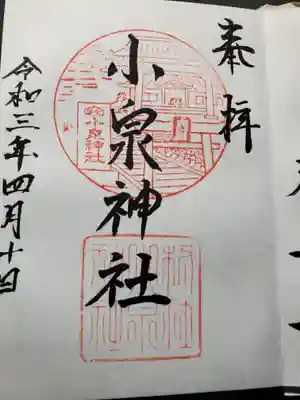 奉拝
小泉神社
小泉神社
令和三年四月十日